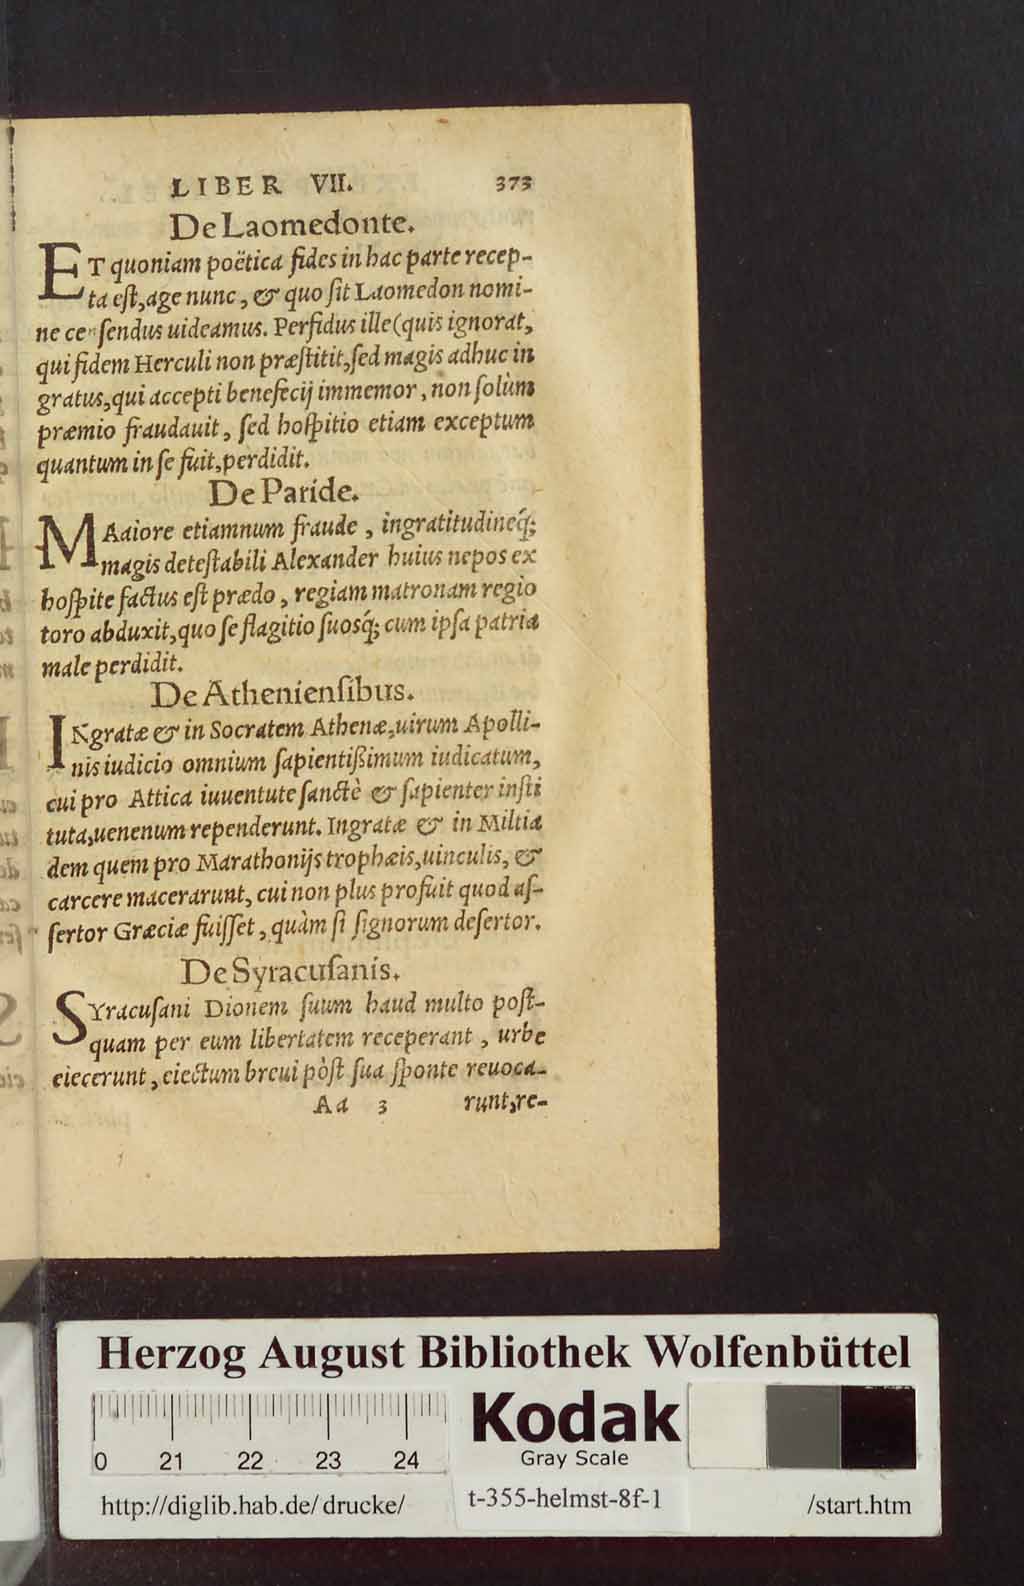 LIBER VII. 373
De Laomedonte.
ET quoniam poëtica fides in hac parte recep-
ta est, age nunc, & quo sit Laomedon nomi-
ne censendus uideamus. Perfidus ille (quis ignorat,
qui fidem Herculi non præstitit, sed magis adhuc in
gratus, qui accepti beneficij immemor, non solùm
præmio fraudauit, sed hospitio etiam exceptum
quantum in se fuit, perdidit.
De Paride.
MAaiore etiamnum fraude, ingratitudineq́;
magis detestabili Alexander huius nepos ex
hospite factus est prædo, regiam matronam regio
toro abduxit, quo se flagitio suosq́; cum ipsa patria
male perdidit.
De Atheniensibus.
INgratæ & in Socratem Athenæ, uirum Apolli-
nis iudicio omnium sapientißimum iudicatum,
cui pro Attica iuuentute sanctè & sapienter insti
tuta, uenenum rependerunt. Ingratæ & in Miltia
dem quem pro Marathonijs trophæis, uinculis, &
carcere macerarunt, cui non plus profuit quod as-
sertor Græciæ fuisset, quàm si signorum desertor.
De Syracusanis.
SYracusani Dionem suum haud multo post-
quam per eum libertatem receperant, urbe
eiecerunt, eiectum breui pòst sua sponte reuoca-
Aa 3 runt, re-
Herzog August Bibliothek Wolfenbüttel
0 21 22 23 24
Kodak
Gray Scale
http://diglib.hab.de/drucke/ t-355-helmst-8f-1 /start.htm